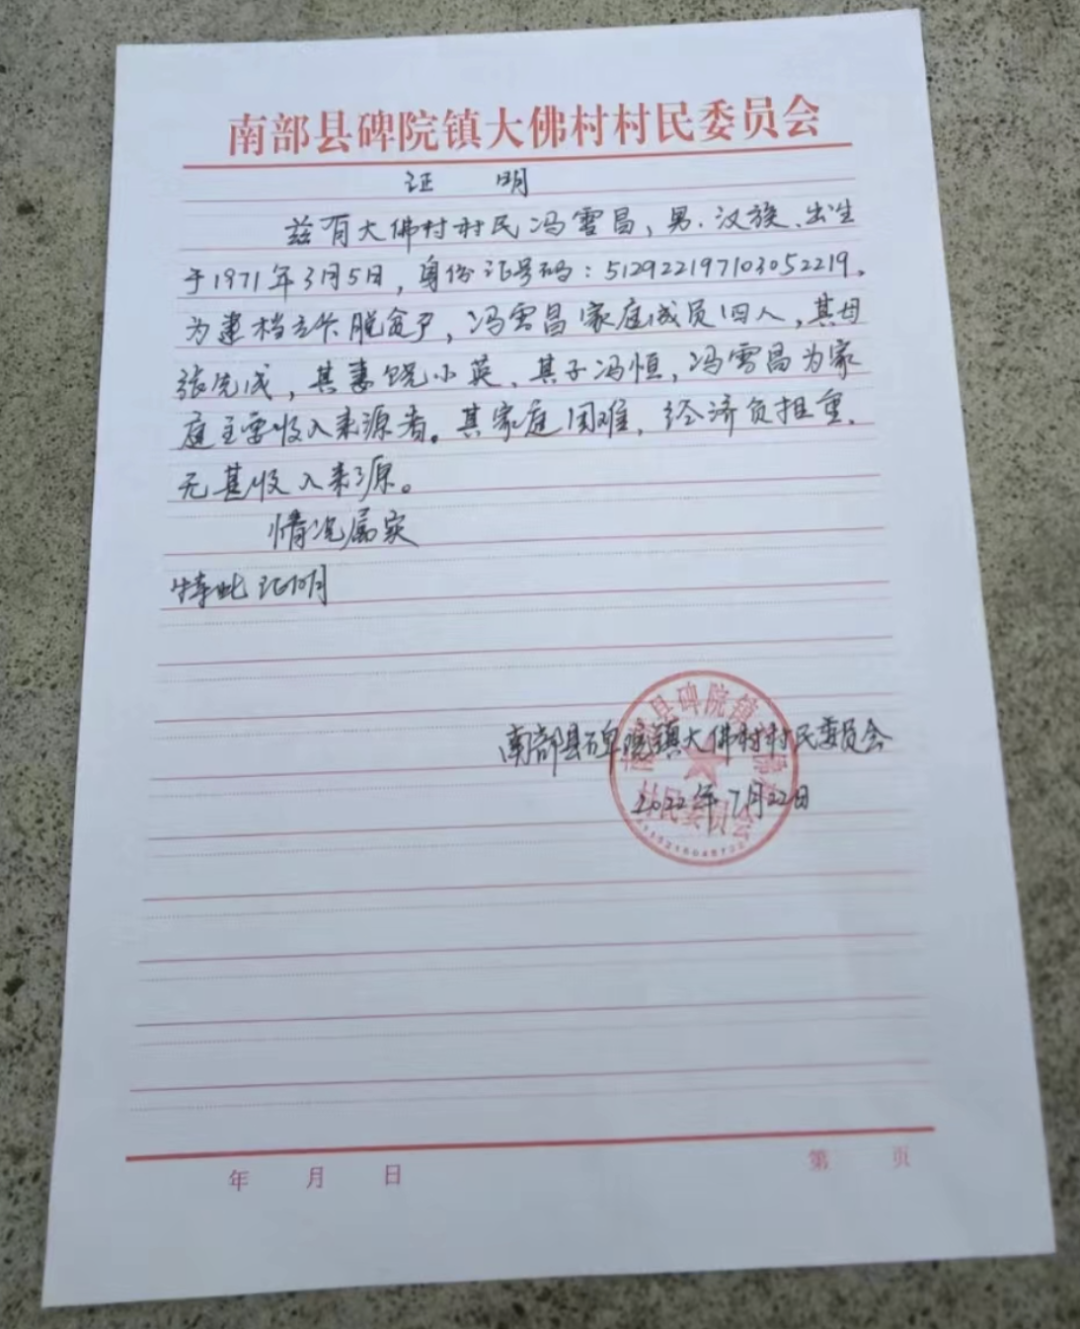 南部县碑院镇大佛村村民委员会
证 明
兹有大佛村村民冯雪昌，男.汉族.出生
于1971年3月5日，身份证号码：512922197103052219.
为建档立卡脱贫户，冯雪昌家庭成员四人，其母
张先成，其妻饶小英，其子冯恒，冯雪昌为家
庭主要收入来源者。其家庭困难，经济负担重.
无其收入来源。
情况属实
特此证明
南部县碑院镇大佛村村民委员会
2022年7月22日
年 月 日
第 页